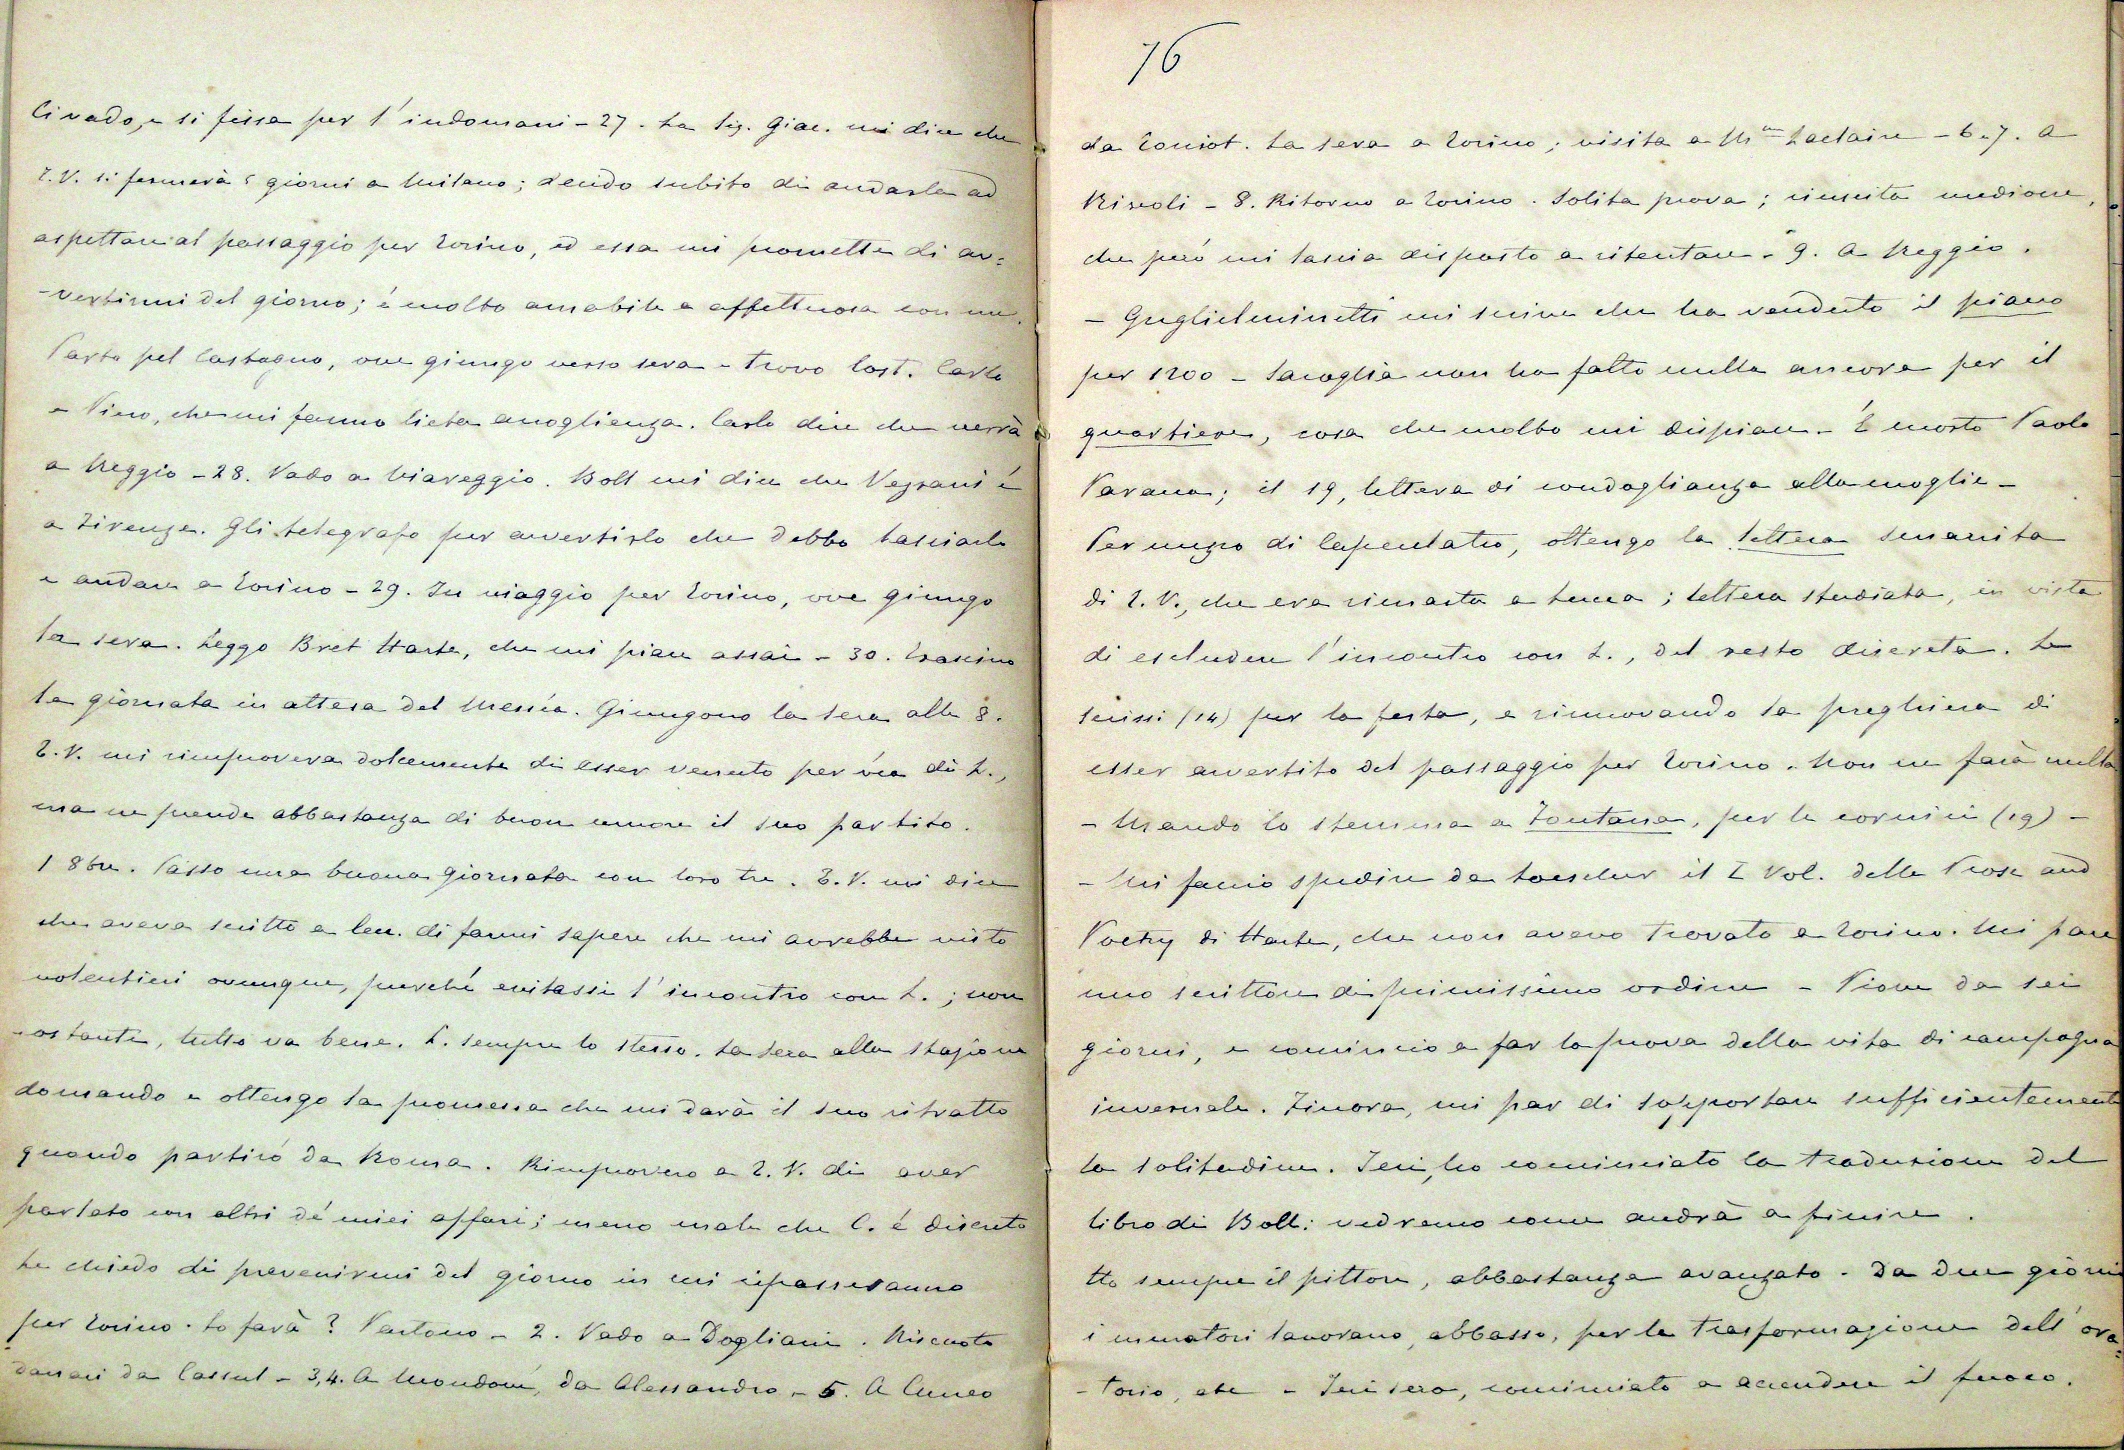 Ci vado, e si fissa per l'indomani - 27. La Sig. Giac. mi dice che
T.V. si fermerà 5 giorni a Milano; decido subito di andarla ad
aspettare al passaggio per Torino, ed essa mi promette di av=
-vertirmi del giorno; é molto amabile e affettuosa con me.
Parto pel Castagno, ove giungo verso sera - trovo Cost. Carlo
e Nino, che mi fanno lieta accoglienza. Carlo dice che verrà
a Reggio - 28. Vado a Viareggio. Boll mi dice che Vegrani é
a Firenze. Gli telegrafo per avvertirlo che debbo lasciarlo
e andare a Torino - 29. In viaggio per Torino, ove giungo
la sera. Leggo Bret Harte, che mi piace assai - 30. Trascino
la giornata in attesa del Messía. Giungono la sera alle 8.
T.V. mi rimprovera dolcemente di esser venuto per via di L.,
ma ne prende abbastanza di buon umore il suo partito.
1 8bre. Passo una buona giornata con loro tre. T.V. mi dice
che aveva scritto a Cec. di farmi sapere che mi avrebbe visto
volentieri ovunque, purché evitassi l'incontro con L.; non
-ostante, tutto va bene. L. sempre lo stesso. La sera alla stazione
domando e ottengo la promessa che mi darà il suo ritratto
quando partirò da Roma. Rimprovero a T.V. di aver
parlato con altri dé miei affari; meno male che C. é discreto
Le chiedo di prevenirmi del giorno in cui ripasseranno
per Torino. Lo farà? Partono - 2. Vado a Dogliani. Riscuoto
danari da Cassul - 3,4. A Mondoví, da Alessandro. - 5. A Cuneo
76
da Toniot. La sera a Torino; visita a M.me Laclaire - 6.7. A
Rivoli - 8. Ritorno a Torino. Solita prova; riuscita mediocre,
che però mi lascia disposto a ritentare. - 9. A Reggio.
- Guglielminetti mi scrive che ha venduto il piano
per 1200 - Savoglia non ha fatto nulla ancora per il
quartiere, cosa che molto mi dispiace. - É morto Paolo
Pavana; il 19, lettera di condoglianza alla moglie -
Per mezzo di Capentatro, ottengo la lettera smarrita
di T.V., che era rimasta a Lucca; lettera studiata, in vista
di escludere l'incontro con L., del resto discreta. Le
scrissi (14) per la festa, e rinnovando la preghiera di
esser avvertito del passaggio per Torino. Non ne farà nulla
- Mando lo stemma a Fontana, per le cornici (19) -
- Mi faccio spedire da Loescher il I Vol. delle Prose and
Poetry di Harte, che non avevo trovato a Torino. Mi pare
uno scrittore di primissimo ordine - Piove da sei
giorni, e comincio a far la prova della vita di campagna
invernale. Finora, mi par di sopportare sufficientemente
la solitudine. Ieri, ho cominciato la traduzione del
libro di Boll: vedremo come andrà a finire.
Ho sempre il pittore, abbastanza avanzato. Da due giorni
i muratori lavorano, abbasso, per la trasformazione dell'ora=
-torio, etc - Ieri sera, cominciato a accendere il fuoco.